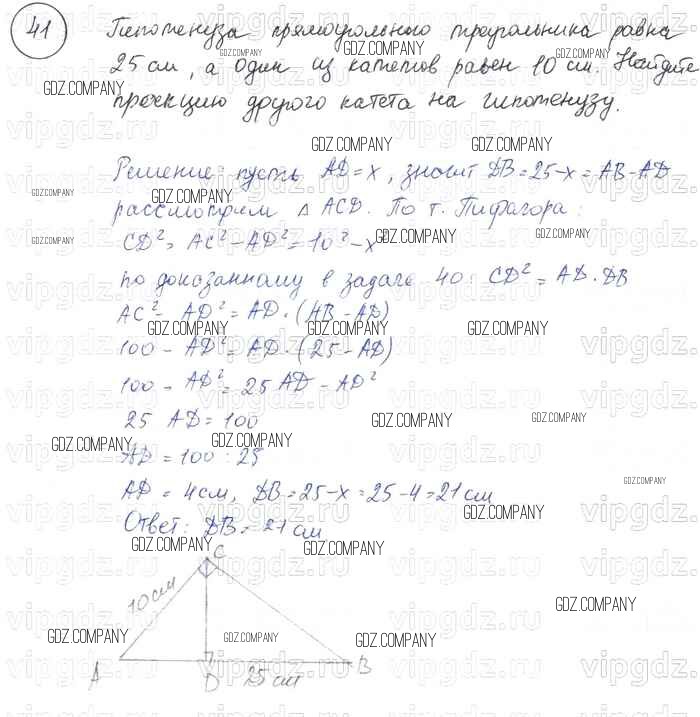 41
Гипотенуза прямоугольного треугольника равна
25 см, а один из катетов равен 10 см. Найдите
проекцию другого катета на гипотенузу.
Решение: пусть AD = x, значит DB = 25 - x = AB - AD
рассмотрим △ ACD. По т. Пифагора:
CD² = AC² - AD² = 10² - x²
по доказанному в задаче 40: CD² = AD · DB
AC² - AD² = AD · (AB - AD)
100 - AD² = AD · (25 - AD)
100 - AD² = 25 AD - AD²
25 AD = 100
AD = 100 : 25
AD = 4 см, DB = 25 - x = 25 - 4 = 21 см
Ответ: DB = 21 см
C
10 см
A D 25 см B
GDZ.COMPANY
vipgdz.ru